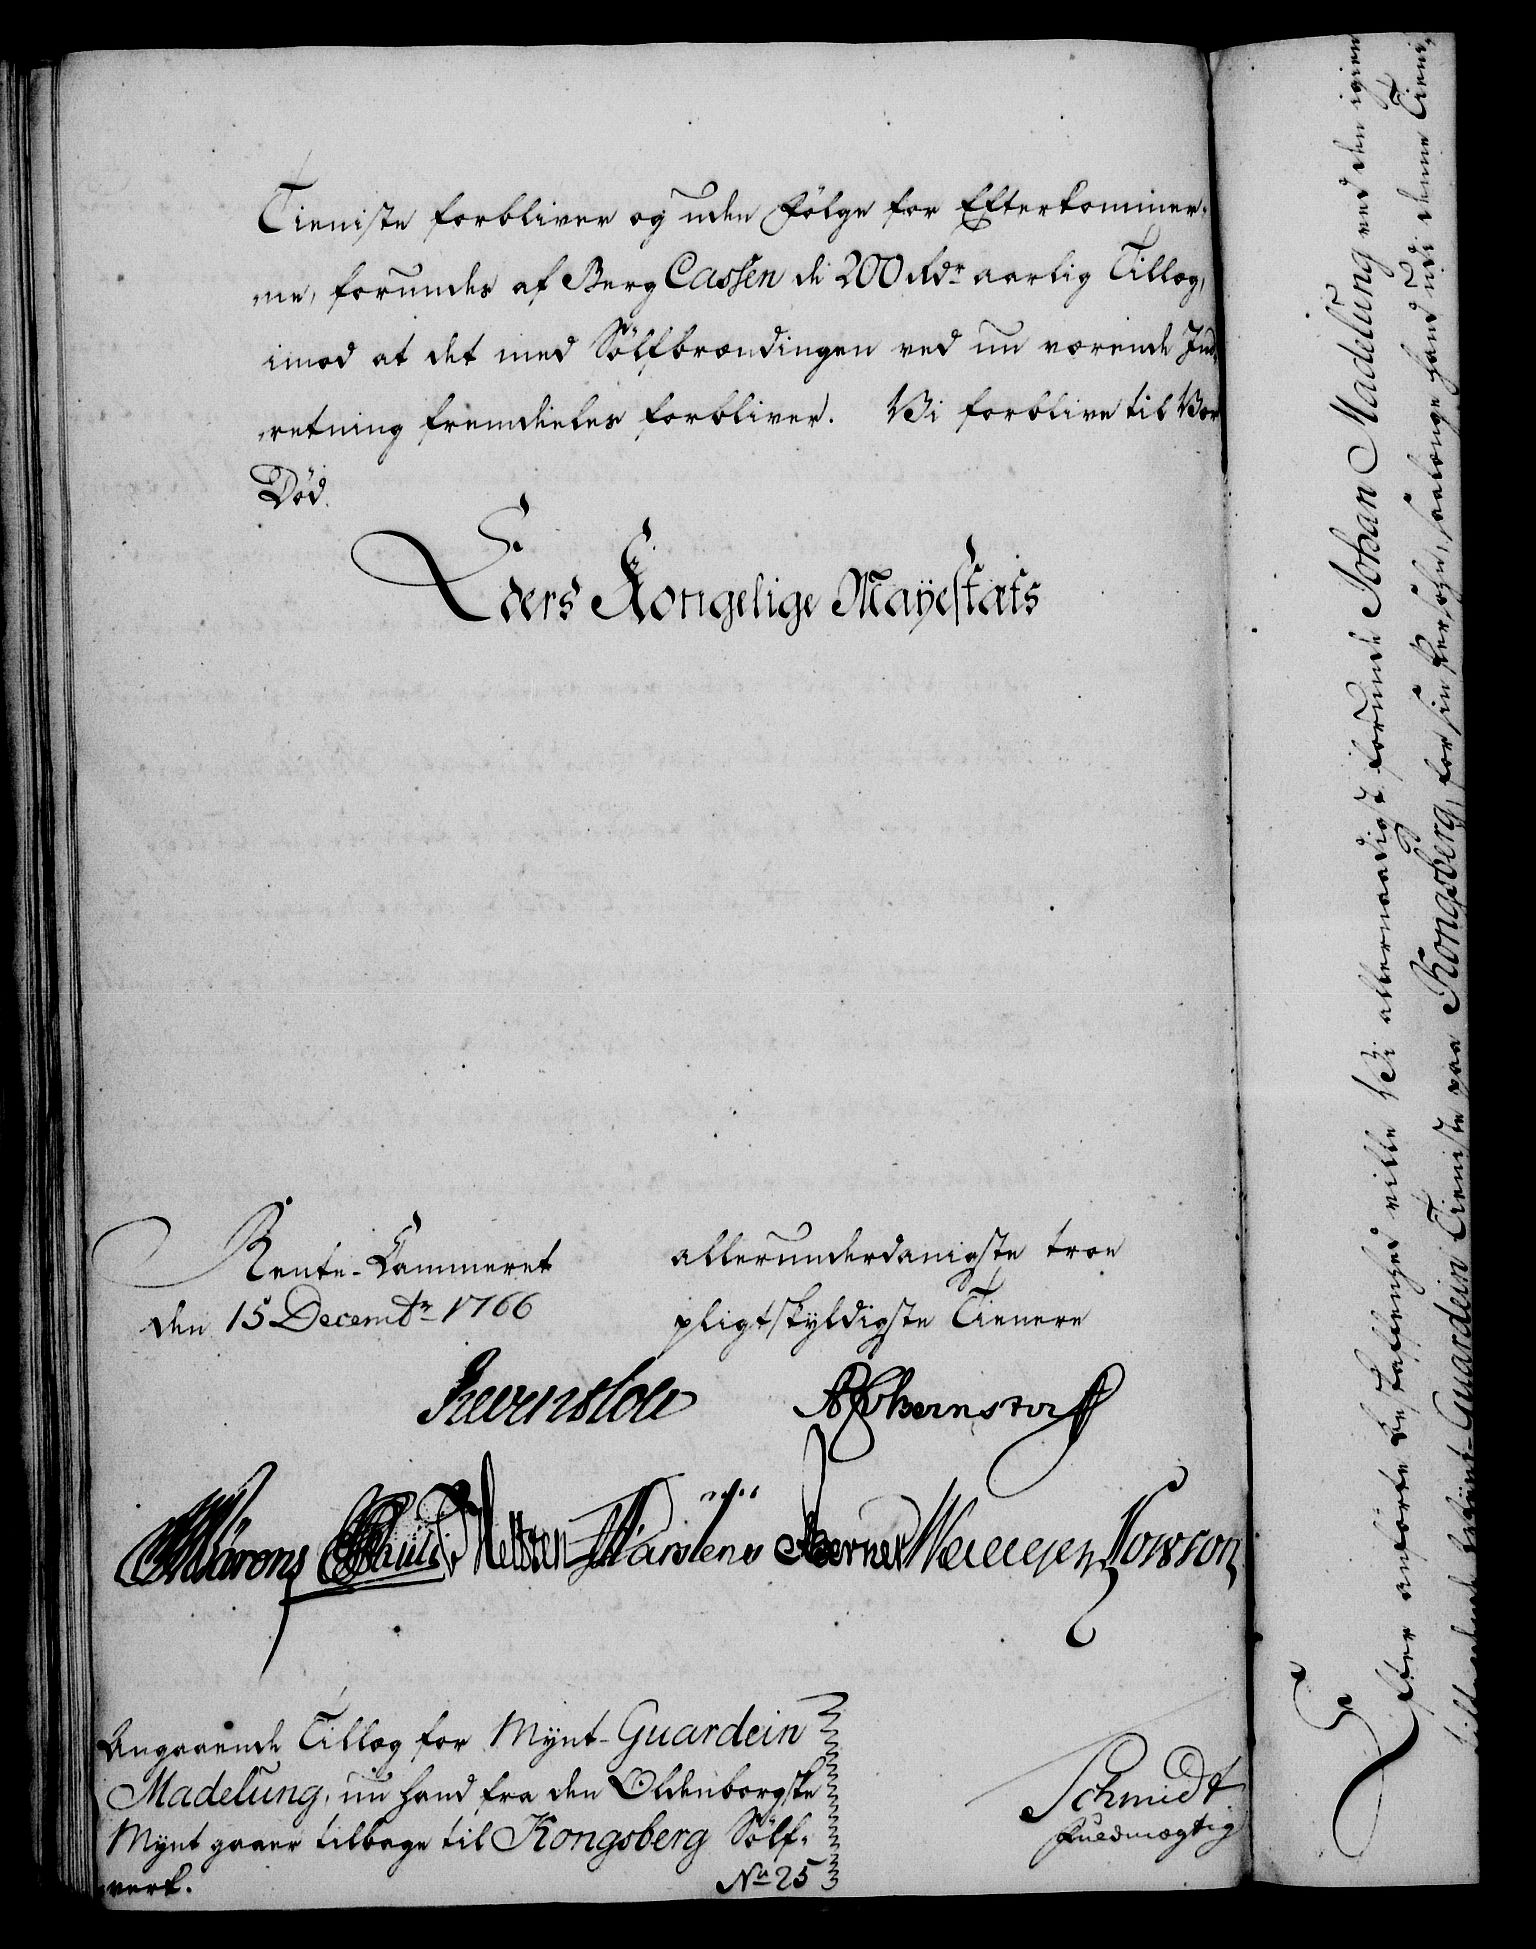 Tieniste forbliver og uden Følge for Efterkommer-
ne, forundes af Berg Cassen de 200 Rdr aarlig Tillæg,
imod at det med Sölfbrændingen ved nu værende Ind-
retning fremdeeles forbliver. Vi forblive til Vor
Död.
Eders Kongelige Mayestæts
Rente-Cammeret
den 15 Decembr 1766
allerunderdanigste troe
pligtskyldigste Tienere
Reventlow
Bernstorff
Kærner
Schmidt
Fuldmægtig
Angaaende Tillæg for Mynt-Guardein
Madelung, nu hand fra den Oldenborgske
Mynt gaaer tilbage til Kongsberg Sölf-
verk.
No 25
Efter anförte Beskaffenhed ville Vi allernaadigst forunde Johan Madelung ved den igien
Mynt-Guardein Tieniste paa Kongsberg, for sin Persohn, saalænge hand udi denne Tieni-